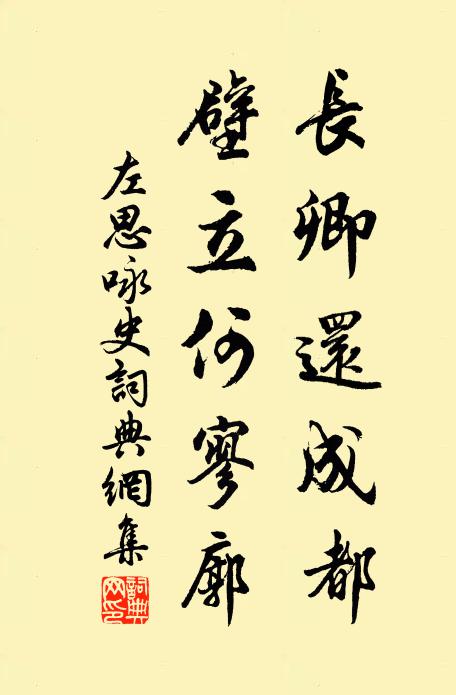 長卿還成都
壁立何寥廓
左思咏史詞典網集
詞典網印